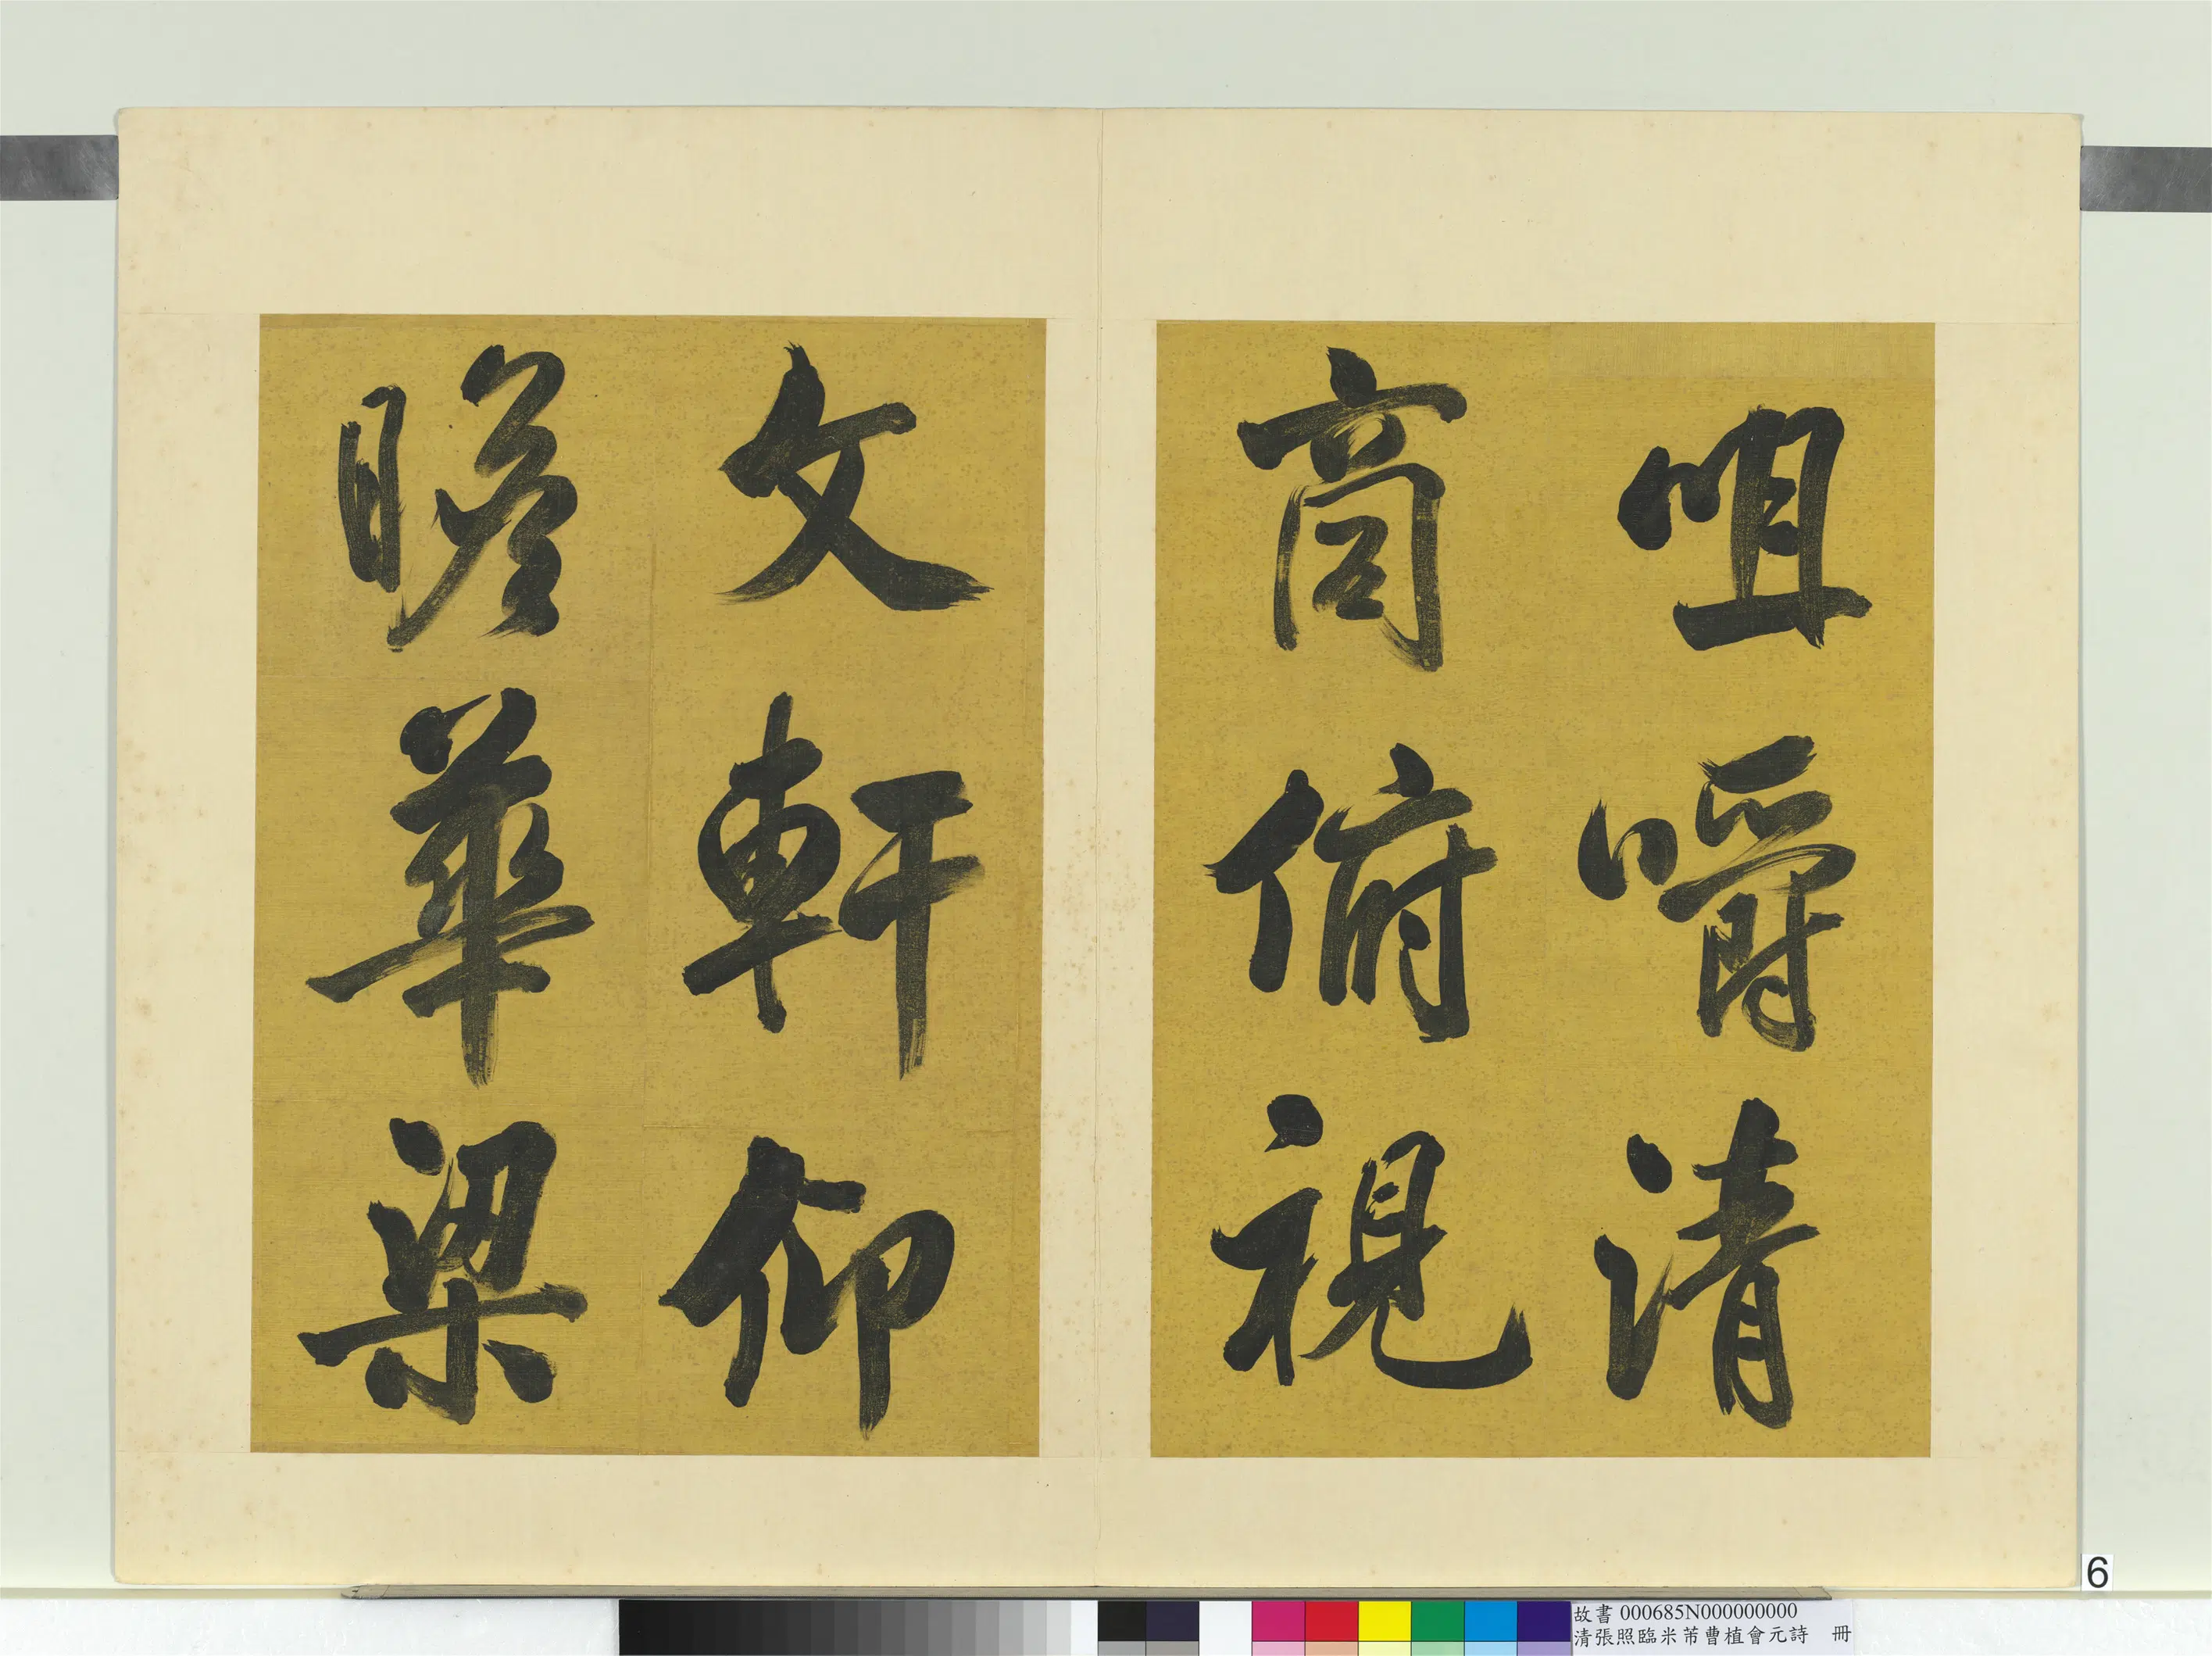 咀嚼清
商俯視
文軒仰
瞻華梁
6
故書 000685N000000000
清張照臨米芾曹植會元詩 冊